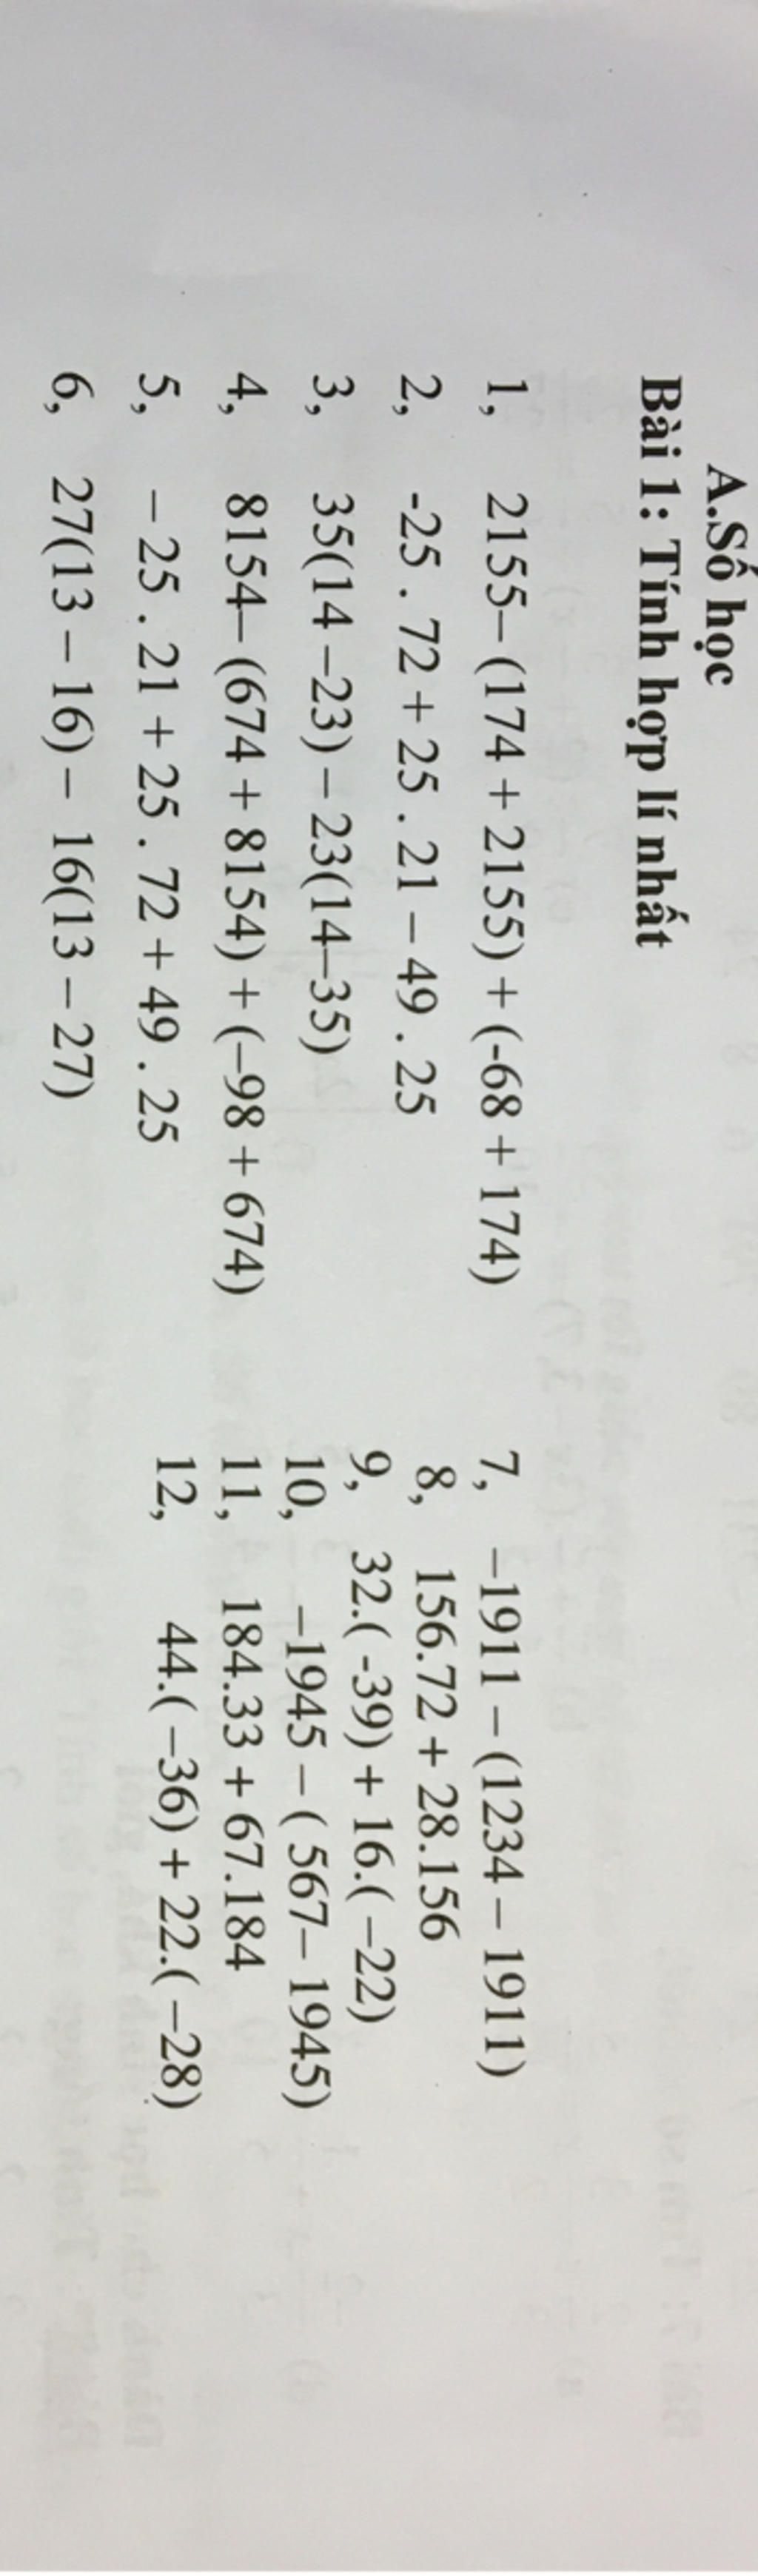 A.Số học
Bài 1: Tính hợp lí nhất
1, 2155– (174 + 2155) + (-68 + 174)
2, -25 . 72 + 25 . 21 – 49 . 25
3, 35(14 –23) – 23(14–35)
4, 8154– (674 + 8154) + (–98 + 674)
5, – 25 . 21 + 25 . 72 + 49 . 25
6, 27(13 – 16) – 16(13 – 27)
7, –1911 – (1234 – 1911)
8, 156.72 + 28.156
9, 32.( -39) + 16.( –22)
10, –1945 – ( 567– 1945)
11, 184.33 + 67.184
12, 44.( –36) + 22.( –28)